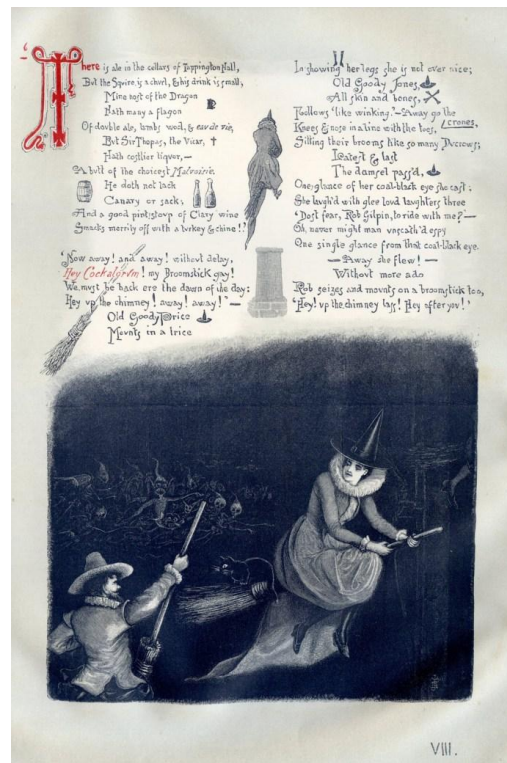 There is ale in the cellars of Tappington Hall,
But the Squire is a churl, & his drink is small;
Mine host of the Dragon
Hath many a flagon
Of double ale, lambs wool, & eau de vie,
But Sir Thopas, the Vicar,
Hath costlier liquor,—
A butt of the choicest Malvoisie.
He doth not lack
Canary or sack;
And a good pint stoup of Clary wine
Smacks merrily off with a turkey & chine!!
'Now away! and away! without delay,
Hey Cockalorum! my Broomstick gay!
We must be back ere the dawn of the day:
Hey up the chimney! away! away!'—
Old Goody Price
Mounts in a trice
In showing her legs she is not over nice;
Old Goody Jones,
All skin and bones,
Follows 'like winking.'—Away go the
crones,
Knees & nose in a line with the toes,
Sitting their brooms like so many Ducrows;
Latest & last
The damsel pass'd,
One glance of her coal-black eye she cast;
She laugh'd with glee loud laughters three
'Dost fear, Rob Gilpin, to ride with me?'—
Oh, never might man unscath'd espy
One single glance from that coal-black eye.
—Away she flew!—
Without more ado
Rob seizes and mounts on a broomstick too,
'Hey! up the chimney lass! Hey after you!'
VIII.